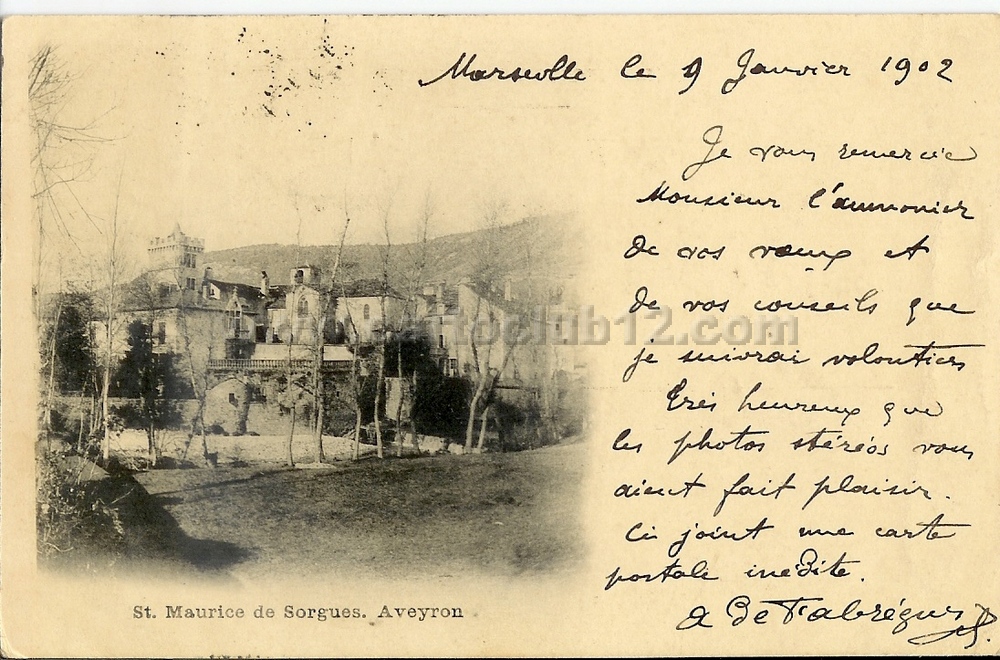 Marseille le 9 Janvier 1902
Je vous remercie
Monsieur l'aumonier
de vos vœux et
de vos conseils que
je suivrai volontiers
Très heureux que
les photos stéréos vous
aient fait plaisir.
Ci joint une carte
postale inédite.
A De Fabrégues
cartoclub12.com
St. Maurice de Sorgues. Aveyron